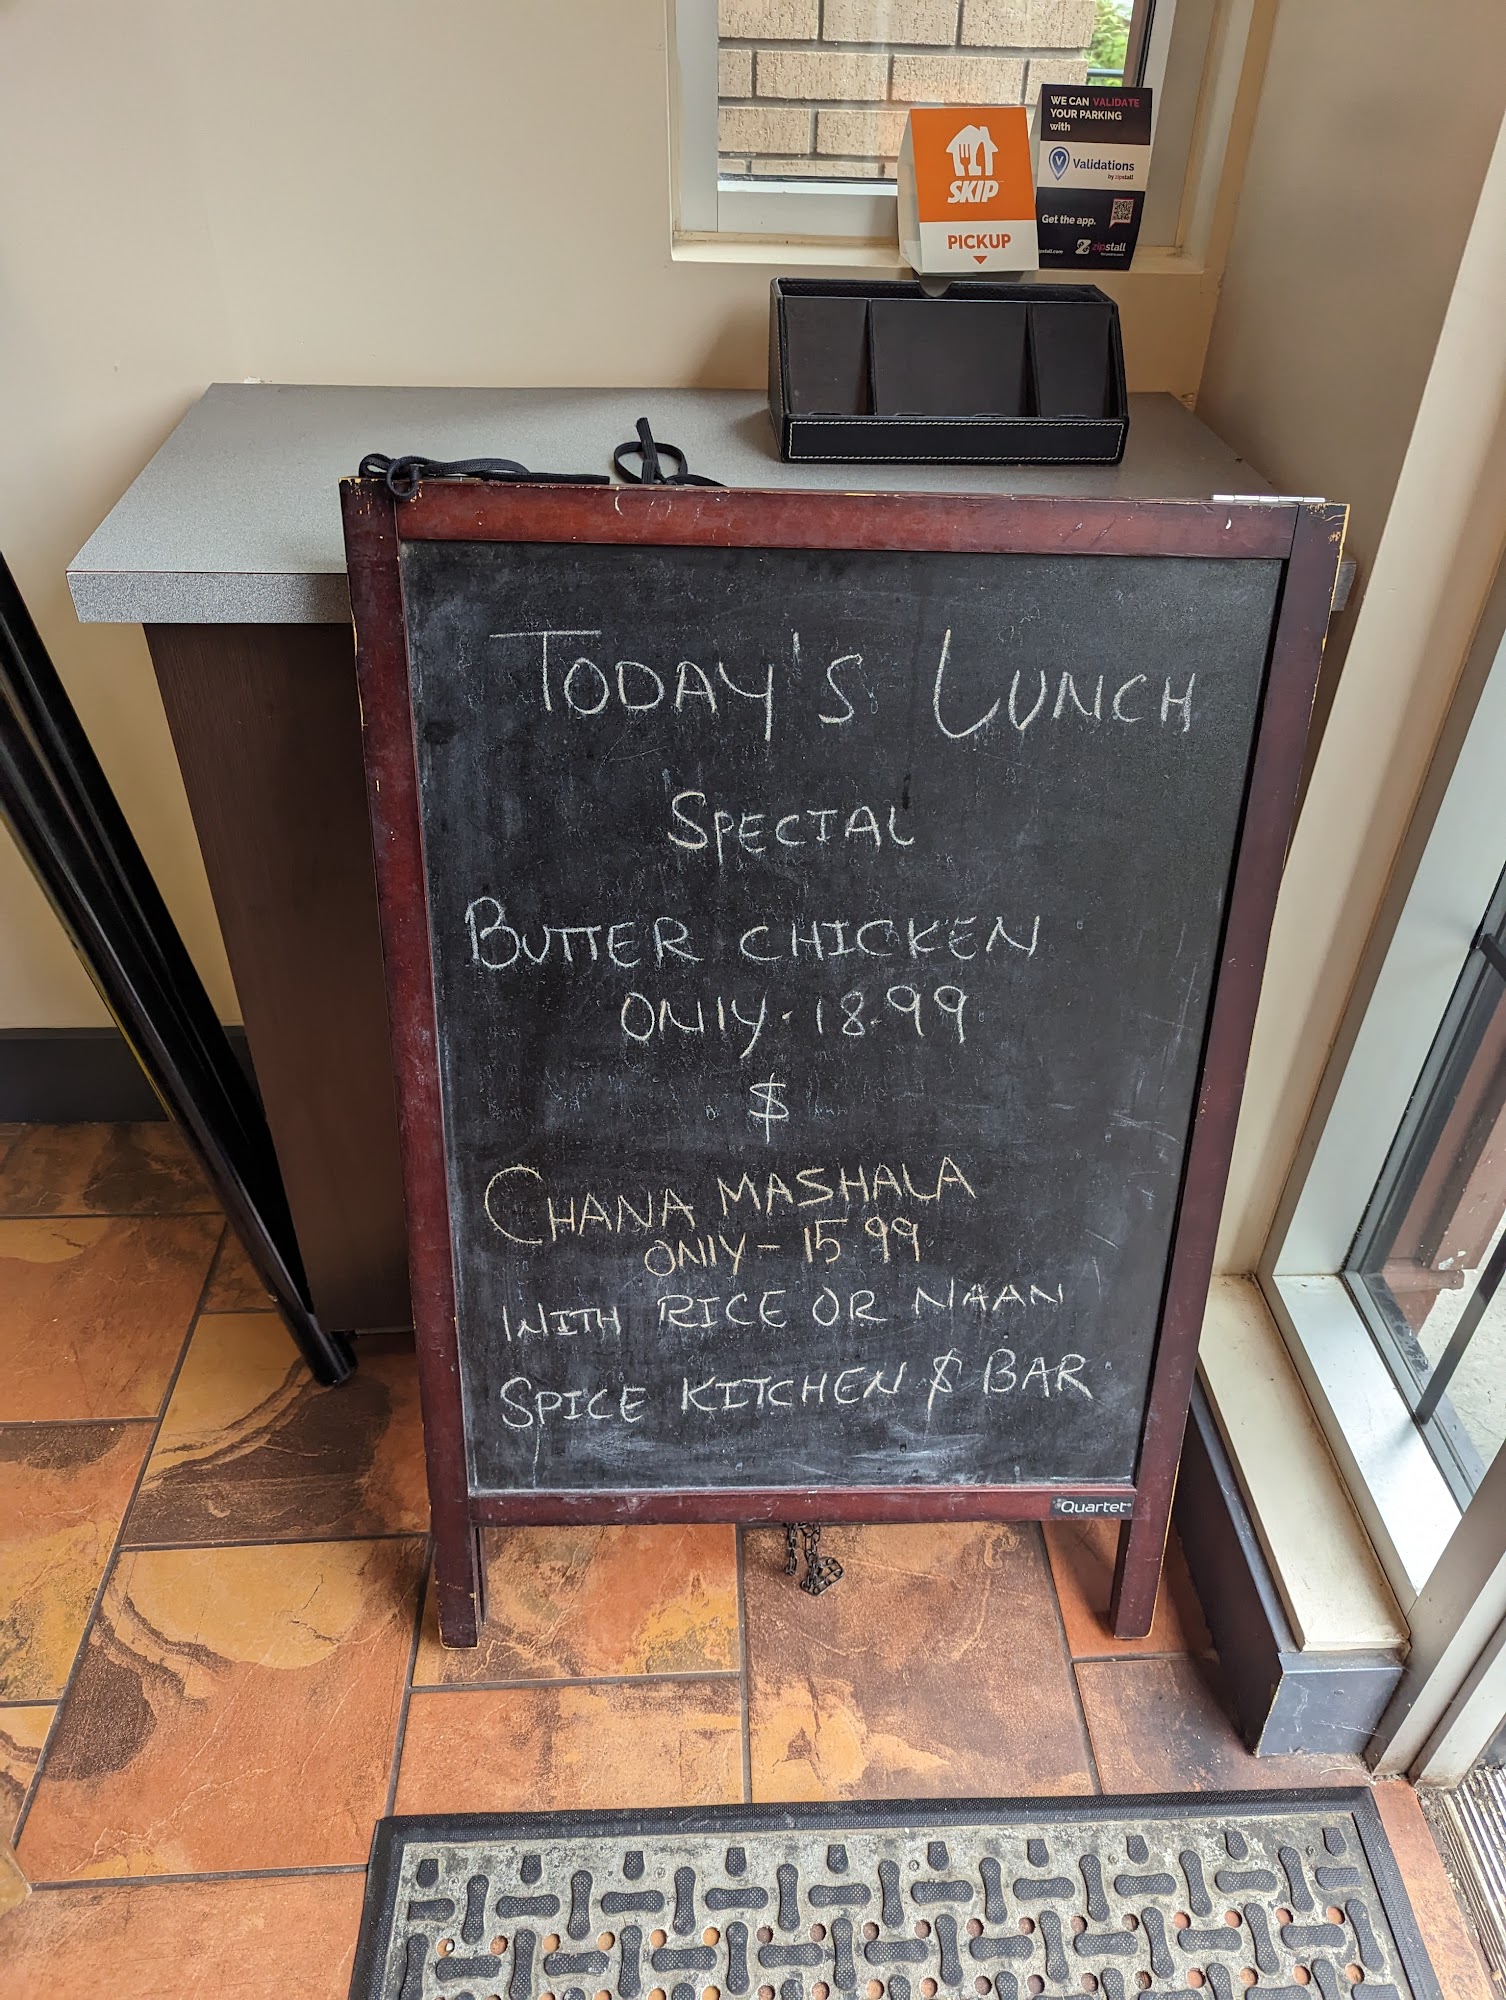 WE CAN VALIDATE
YOUR PARKING
with
Validations
by zipstall
SKIP
Get the app.
PICKUP
zipstall
TODAY'S LUNCH
SPECIAL
BUTTER CHICKEN
ONlY - 18.99
$
CHANA MASHALA
ONlY - 15 99
WITH RICE OR NAAN
SPICE KITCHEN $ BAR
Quartet